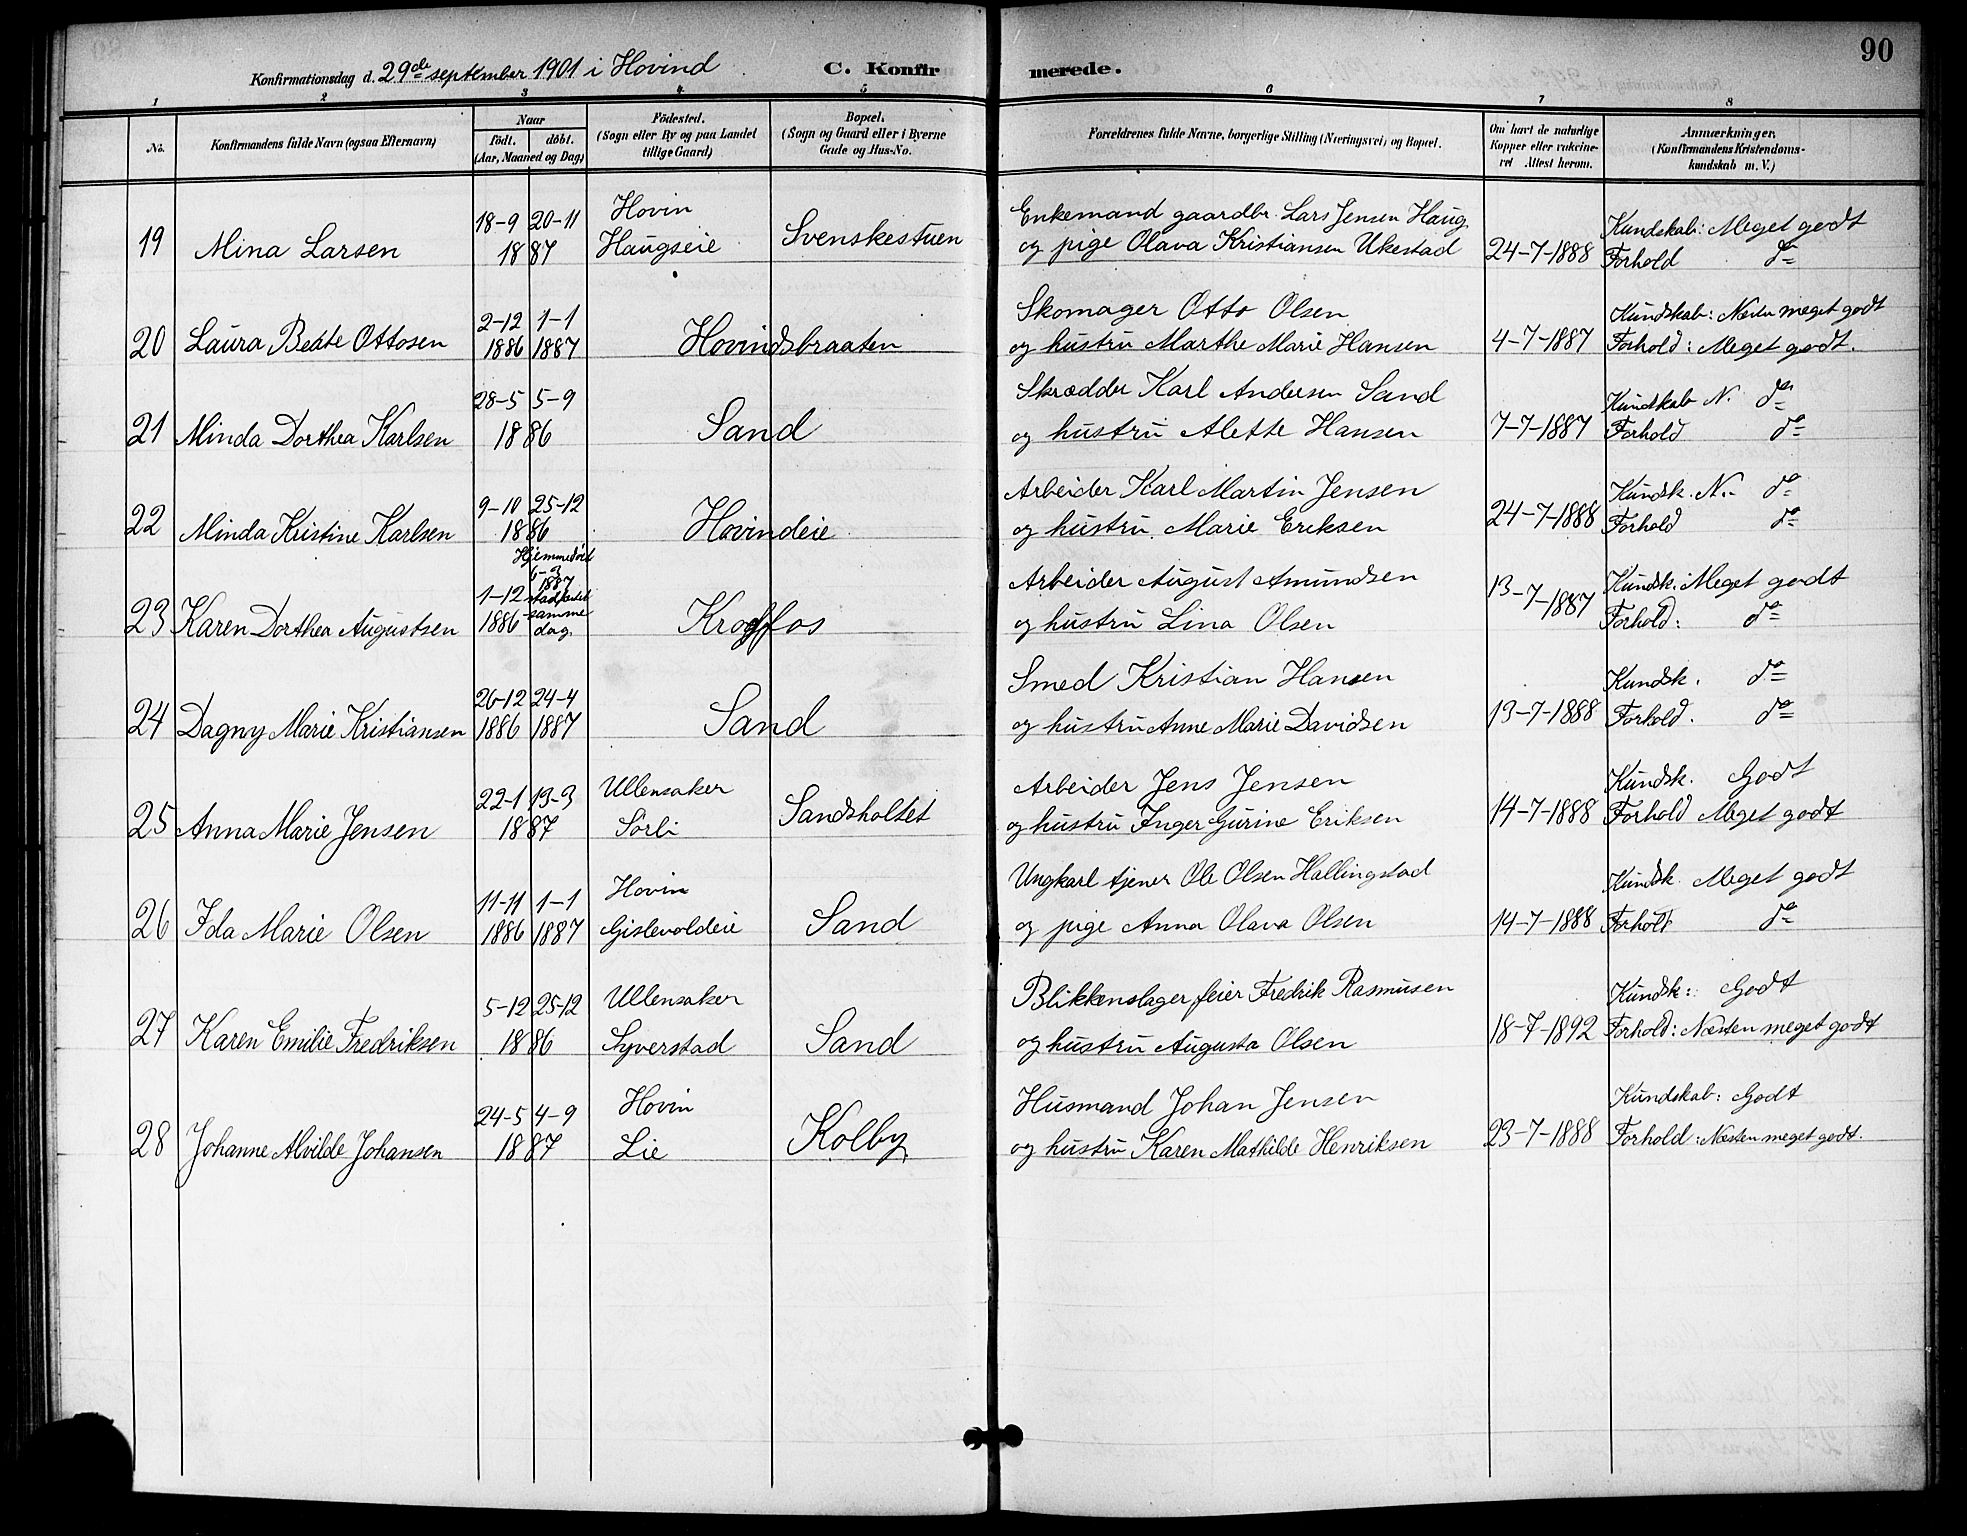 90
Konfirmationsdag d. 29de september 1901 i Hovind C. Konfirmerede.
1 2 3 4 5 6 7 8
No. Konfirmandens fulde Navn (ogsaa Efternavn) Naar födt. döbt. (Aar, Maaned og Dag)
Födested. (Sogn eller By og paa Landet tillige Gaard)
Bopæl. (Sogn og Gaard eller i Byerne Gade og Hus-No.
Forældrenes fulde Navne, borgerlige Stilling (Næringsvei) og Bopæl.
Om havt de naturlige Kopper eller vakcineret Attest herom.
Anmærkninger. (Konfirmandens Kristendomskundskab m. V.)
18-9 20-11 Hovin Enkemand gaardbr. Lars Jensen Haug Kundskab: Meget godt
19 Mina Larsen 1887 Haugseie Svenskestuen og pige Olava Kristiansen Ukestad 24-7-1888 Forhold do
2-12 1-1 Skomager Otto Olsen Kundskab: Næsten meget godt
20 Laura Beate Ottosen 1886 1887 Hovindsbraaten og hustru Marthe Marie Hansen 4-7-1887 Forhold: Meget godt.
28-5 5-9 Skrædder Karl Andersen Sand Kundskab N. do
21 Minda Dorthea Karlsen 1886 Sand og hustru Alette Hansen 7-7-1887 Forhold do
9-10 25-12 Arbeider Karl Martin Jensen Kundsk. N.- do
22 Minda Kristine Karlsen 1886 Hovindeie og hustru Marie Eriksen 24-7-1888 Forhold do
Hjemmedøbt 6-3 1887
1-12 stadfæstet Arbeider August Amundsen 13-7-1887 Kundsk: Meget godt
23 Karen Dorthea Augustsen 1886 samme dag. Krogfos og hustru Lina Olsen Forhold: do
26-12 24-4 Smed Kristian Hansen Kundsk. do
24 Dagny Marie Kristiansen 1886 1887 Sand og hustru Anne Marie Davidsen 13-7-1888 Forhold. do
22-1 13-3 Ullensaker Arbeider Jens Jensen Kundsk. Godt
25 Anna Marie Jensen 1887 Sörli Sandsholtet og hustru Inger Gurine Eriksen 14-7-1888 Forhold Meget godt
11-11 1-1 Hovin Ungkarl tjener Ole Olsen Hallingstad Kundsk. Meget godt
26 Ida Marie Olsen 1886 1887 Gislevoldeie Sand og pige Anna Olava Olsen 14-7-1888 Forhold do
5-12 25-12 Ullensaker Blikkenslager, feier Fredrik Rasmusen Kundsk: Godt
27 Karen Emilie Fredriksen 1886 Syverstad Sand og hustru Augusta Olsen 18-7-1892 Forhold: Næsten meget godt
24-5 4-9 Hovin Husmand Johan Jensen Kundskab: Godt
28 Johanne Alvilde Johansen 1887 Lie Kolby og hustru Karen Mathilde Henriksen 23-7-1888 Forhold: Næsten meget godt.